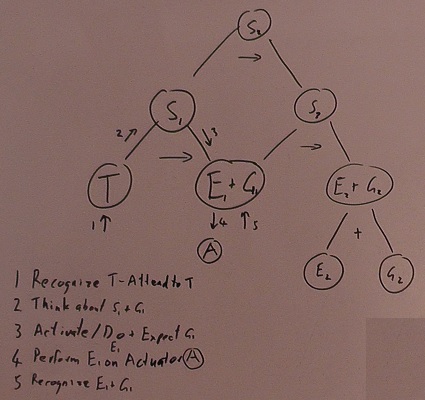 S₀
S₁
S₂
2
3
T
E₁ + G₁
E₂ + G₂
1
4
5
A
+
E₂
G₂
1 Recognize T - Attend to T
2 Think about S₁ + G₁
3 Activate / Do + Expect G₁
E₁
4 Perform E₁ on Actuator A
5 Recognize E₁ + G₁